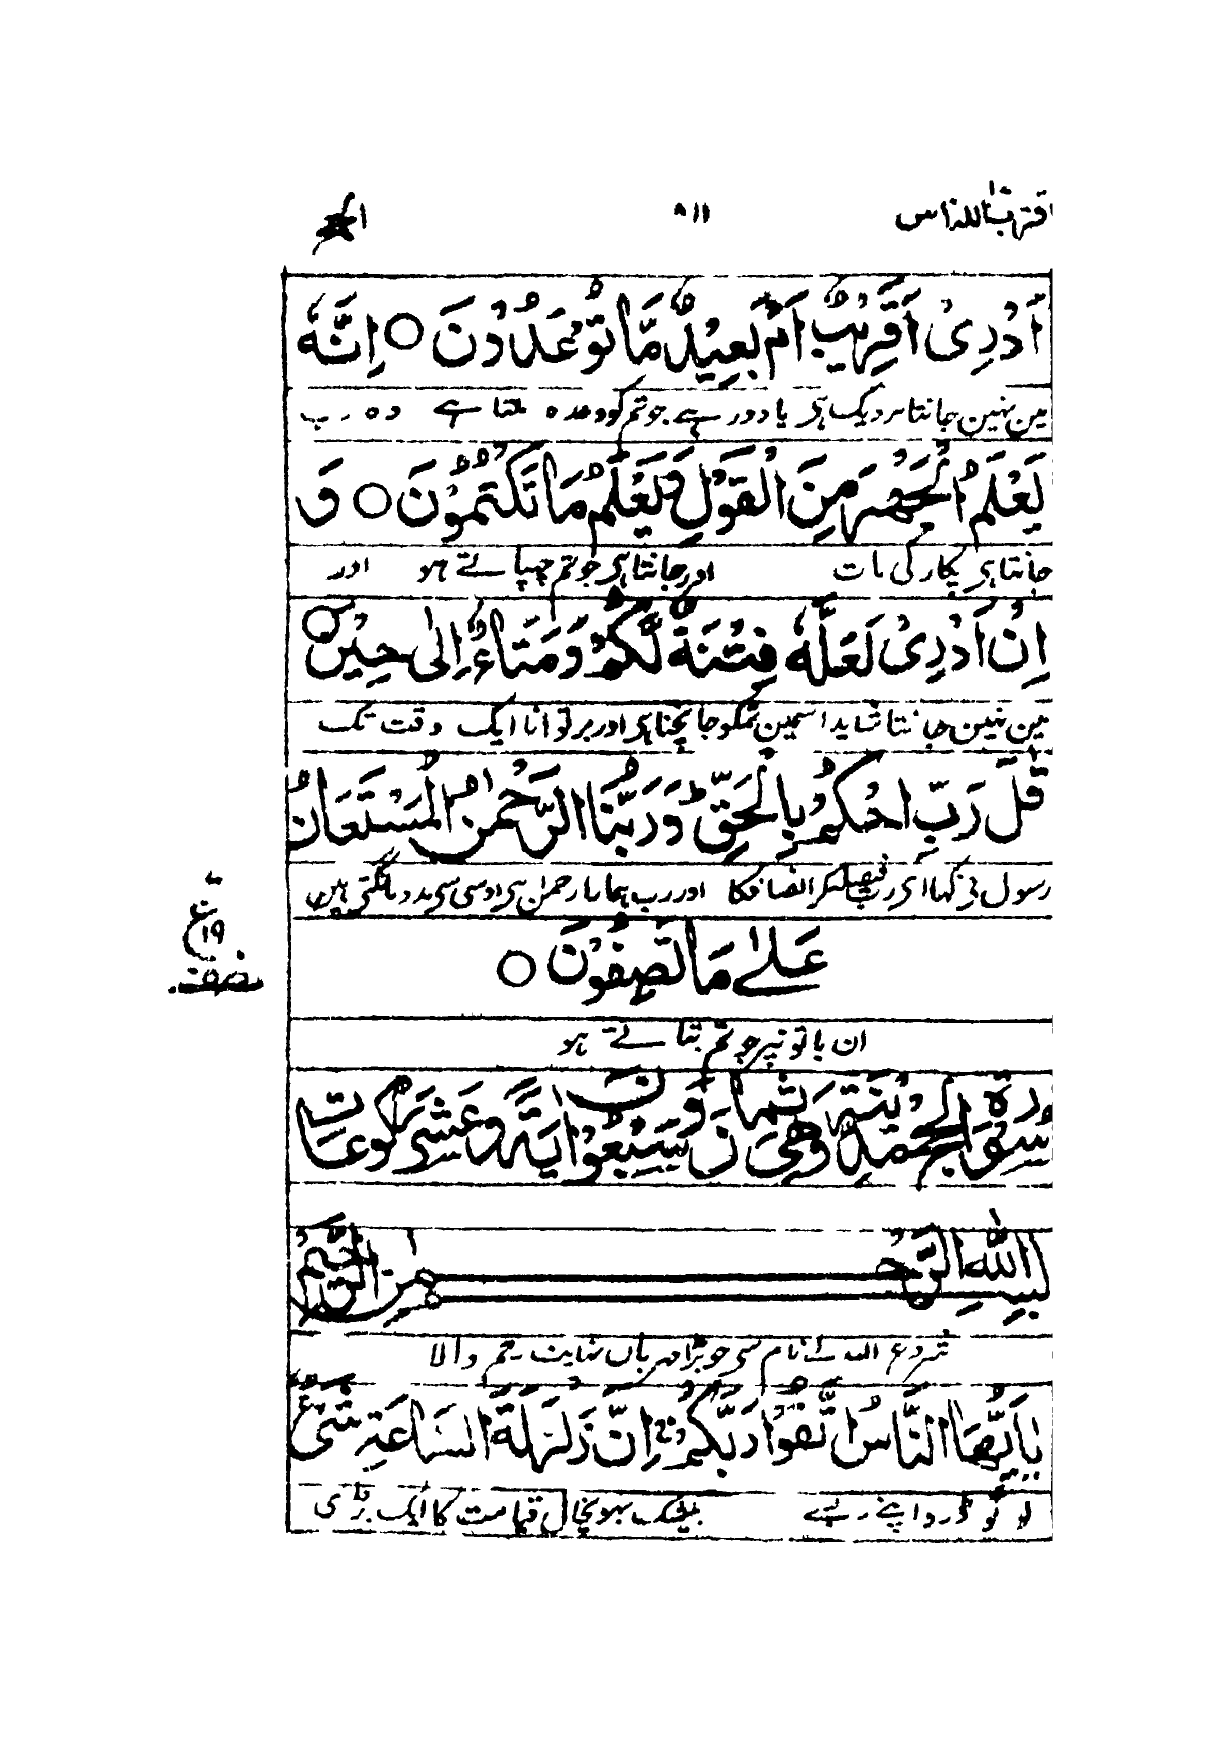 اقترب للناس ۸۱۱ الحج
اَدْرِىْ اَقَرِيْبٌ اَمْ بَعِيْدٌ مَّا تُوْعَدُوْنَ ○ اِنَّهٗ
مین نہین جانتا نزدیک ہی یا دور ہے جو تم کو وعدہ ملتا ہے وہ رب
يَعْلَمُ الْجَهْرَ مِنَ الْقَوْلِ وَيَعْلَمُ مَا تَكْتُمُوْنَ ○ وَ
جانتا ہی پکار کی بات اور جانتا ہی جو تم چھپاتے ہو اور
اِنْ اَدْرِىْ لَعَلَّهٗ فِتْنَةٌ لَّكُمْ وَمَتَاعٌ اِلٰى حِيْنٍ ○
مین نہین جانتا شاید اسمین تمکو جانچنا ہی اور برتوانا ایک وقت تک
قٰلَ رَبِّ احْكُمْ بِالْحَقِّ ؕ وَرَبُّنَا الرَّحْمٰنُ الْمُسْتَعَانُ
رسول نی کہا ای رب فیصلہ کر انصاف کا اور رب ہمارا رحمن ہی اوسی سی مدد مانگتی ہین
ع
۱۹
نصف
عَلٰى مَا تَصِفُوْنَ ○
ان باتو نپر جو تم بتاتے ہو
سورة الحج مدنية وهى ثمان وسبعون اية وعشر ركوعات
بسم الله الرحمن الرحيم
شروع اللہ کے نام سی جو بڑا مہربان نہایت رحم والا
يٰاَيُّهَا النَّاسُ اتَّقُوْا رَبَّكُمْ ۚ اِنَّ زَلْزَلَةَ السَّاعَةِ شَىْءٌ
لوگو ڈرو اپنے رب سے بیشک بھونچال قیامت کا ایک بڑی